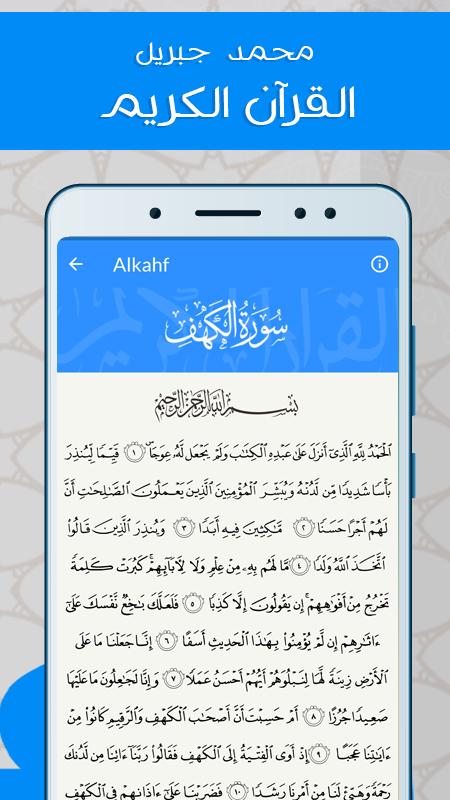 محمد جبريل
القرآن الكريم
Alkahf
سورة الكهف
بسم الله الرحمن الرحيم
ٱلْحَمْدُ لِلَّهِ ٱلَّذِىٓ أَنزَلَ عَلَىٰ عَبْدِهِ ٱلْكِتَٰبَ وَلَمْ يَجْعَل لَّهُۥ عِوَجَاۜ ١ قَيِّمًا لِّيُنذِرَ
بَأْسًا شَدِيدًا مِّن لَّدُنْهُ وَيُبَشِّرَ ٱلْمُؤْمِنِينَ ٱلَّذِينَ يَعْمَلُونَ ٱلصَّٰلِحَٰتِ أَنَّ
لَهُمْ أَجْرًا حَسَنًا ٢ مَّٰكِثِينَ فِيهِ أَبَدًا ٣ وَيُنذِرَ ٱلَّذِينَ قَالُوا۟
ٱتَّخَذَ ٱللَّهُ وَلَدًا ٤ مَّا لَهُم بِهِۦ مِنْ عِلْمٍ وَلَا لِءَابَآئِهِمْ ۚ كَبُرَتْ كَلِمَةً
تَخْرُجُ مِنْ أَفْوَٰهِهِمْ ۚ إِن يَقُولُونَ إِلَّا كَذِبًا ٥ فَلَعَلَّكَ بَٰخِعٌ نَّفْسَكَ عَلَىٰٓ
ءَاثَٰرِهِمْ إِن لَّمْ يُؤْمِنُوا۟ بِهَٰذَا ٱلْحَدِيثِ أَسَفًا ٦ إِنَّا جَعَلْنَا مَا عَلَى
ٱلْأَرْضِ زِينَةً لَّهَا لِنَبْلُوَهُمْ أَيُّهُمْ أَحْسَنُ عَمَلًا ٧ وَإِنَّا لَجَٰعِلُونَ مَا عَلَيْهَا
صَعِيدًا جُرُزًا ٨ أَمْ حَسِبْتَ أَنَّ أَصْحَٰبَ ٱلْكَهْفِ وَٱلرَّقِيمِ كَانُوا۟ مِنْ
ءَايَٰتِنَا عَجَبًا ٩ إِذْ أَوَى ٱلْفِتْيَةُ إِلَى ٱلْكَهْفِ فَقَالُوا۟ رَبَّنَآ ءَاتِنَا مِن لَّدُنكَ
رَحْمَةً وَهَيِّئْ لَنَا مِنْ أَمْرِنَا رَشَدًا ١٠ فَضَرَبْنَا عَلَىٰٓ ءَاذَانِهِمْ فِى ٱلْكَهْفِ